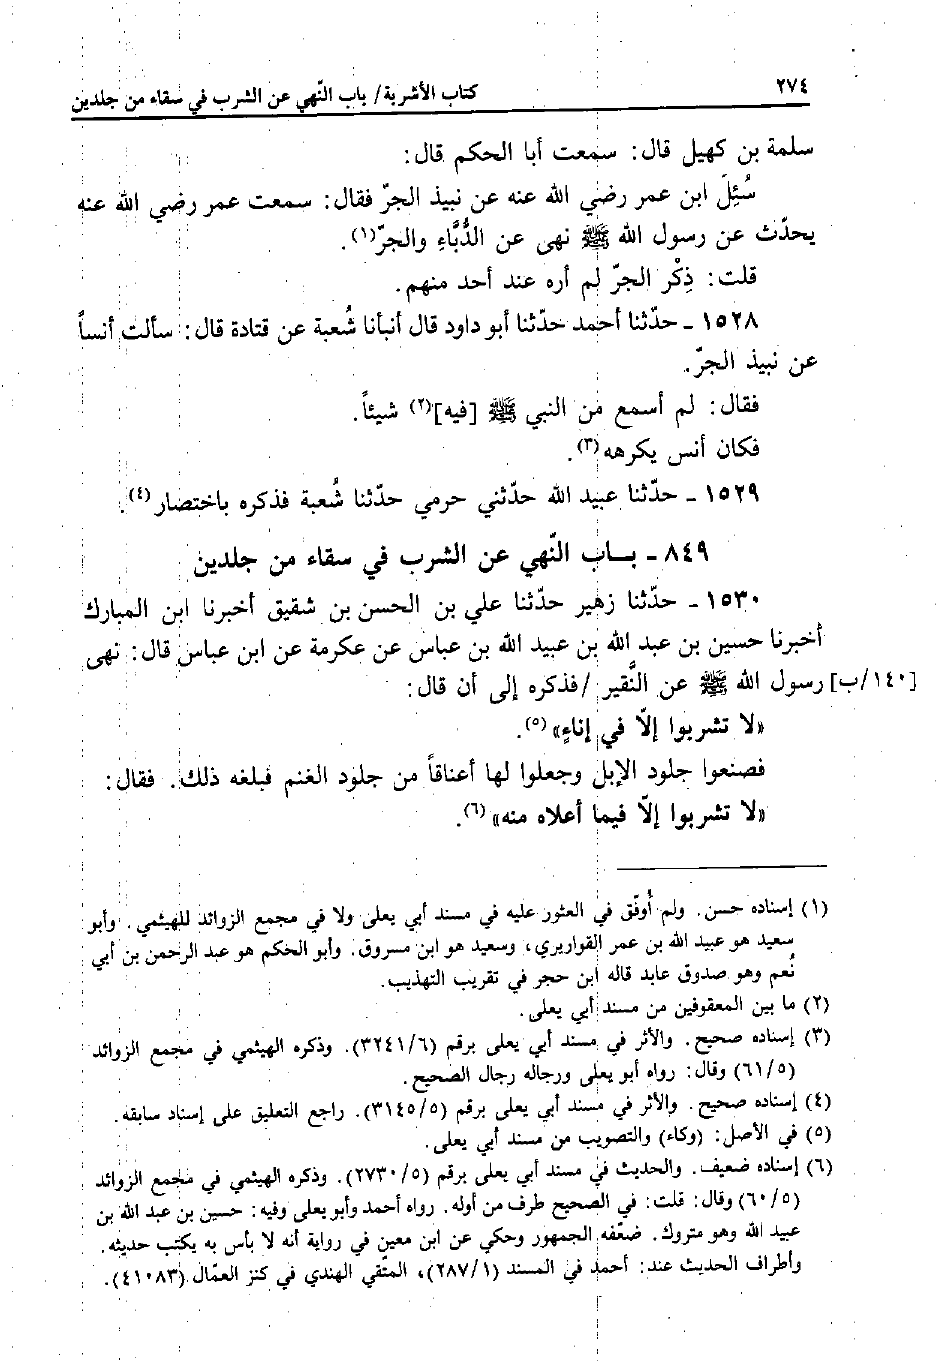 ٢٧٤
كتاب الأشربة / باب النّهي عن الشرب في سقاء من جلدين
سلمة بن كهيل قال: سمعت أبا الحكم قال:
سُئِلَ ابن عمر رضي الله عنه عن نبيذ الجرّ فقال: سمعت عمر رضي الله عنه
يحدّث عن رسول الله ﷺ نهى عن الدُّبَّاءِ والجرّ(١).
قلت: ذِكْر الجرّ لم أره عند أحد منهم.
١٥٢٨ - حدّثنا أحمد حدّثنا أبو داود قال أنبأنا شُعبة عن قتادة قال: سألت أنساً
عن نبيذ الجرّ.
فقال: لم أسمع من النبي ﷺ [فيه](٢) شيئاً.
فكان أنس يكرهه(٣).
١٥٢٩ - حدّثنا عبيد الله حدّثني حرمي حدّثنا شُعبة فذكره باختصار(٤).
٨٤٩ - بـاب النّهي عن الشرب في سقاء من جلدين
١٥٣٠ - حدّثنا زهير حدّثنا علي بن الحسن بن شقيق أخبرنا ابن المبارك
أخبرنا حسين بن عبد الله بن عبيد الله بن عباس عن عكرمة عن ابن عباس قال: نهى
[١٤٠/ب] رسول الله ﷺ عن النَّقير /فذكره إلى أن قال:
«لا تشربوا إلاّ في إناءٍ»(٥).
فصنعوا جلود الإبل وجعلوا لها أعناقاً من جلود الغنم فبلغه ذلك. فقال:
«لا تشربوا إلاّ فيما أعلاه منه»(٦).
(١) إسناده حسن. ولم أُوفّق في العثور عليه في مسند أبي يعلى ولا في مجمع الزوائد للهيثمي. وأبو
سعيد هو عبيد الله بن عمر القواريري، وسعيد هو ابن مسروق. وأبو الحكم هو عبد الرحمن بن أبي
نُعم وهو صدوق عابد قاله ابن حجر في تقريب التهذيب.
(٢) ما بين المعقوفين من مسند أبي يعلى.
(٣) إسناده صحيح. والأثر في مسند أبي يعلى برقم (٣٢٤١/٦). وذكره الهيثمي في مجمع الزوائد
(٦١/٥) وقال: رواه أبو يعلى ورجاله رجال الصحيح.
(٤) إسناده صحيح. والأثر في مسند أبي يعلى برقم (٣١٤٥/٥). راجع التعليق على إسناد سابقه.
(٥) في الأصل: (وكاء) والتصويب من مسند أبي يعلى.
(٦) إسناده ضعيف. والحديث في مسند أبي يعلى برقم (٢٧٣٠/٥). وذكره الهيثمي في مجمع الزوائد
(٦٠/٥) وقال: قلت: في الصحيح طرف من أوله. رواه أحمد وأبو يعلى وفيه: حسين بن عبد الله بن
عبيد الله وهو متروك. ضعّفه الجمهور وحكي عن ابن معين في رواية أنه لا بأس به يكتب حديثه.
وأطراف الحديث عند: أحمد في المسند (٢٨٧/١)، المتقي الهندي في كنز العمّال (٤١٠٨٣).